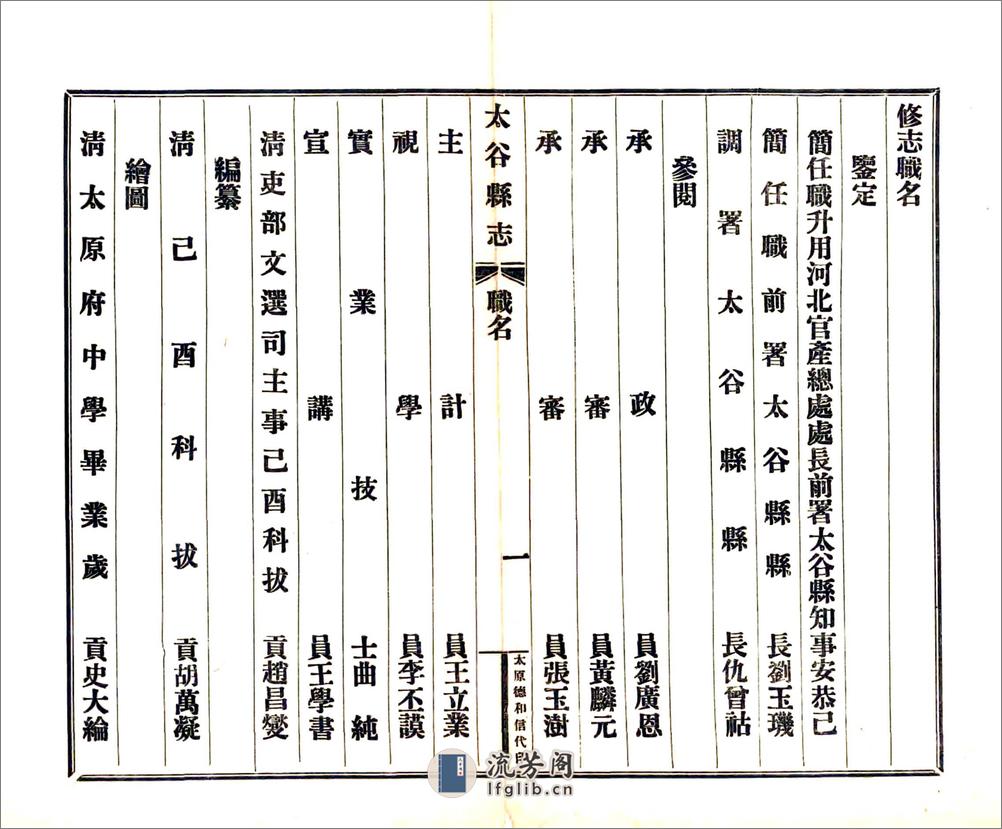 修志職名
鑒定
簡任職升用河北官產總處處長前署太谷縣知事安恭己
簡任職前署太谷縣縣長劉玉璣
調署太谷縣縣長仇曾祜
參閱
承政員劉廣恩
承審員黃麟元
承審員張玉澍
太谷縣志
職名
一
太原德和信代印
主計員王立業
視學員李丕謨
實業技士曲純
宣講員王學書
淸吏部文選司主事己酉科拔貢趙昌燮
編纂
淸己酉科拔貢胡萬凝
繪圖
淸太原府中學畢業歲貢史大綸
流芳阁
lfglib.cn